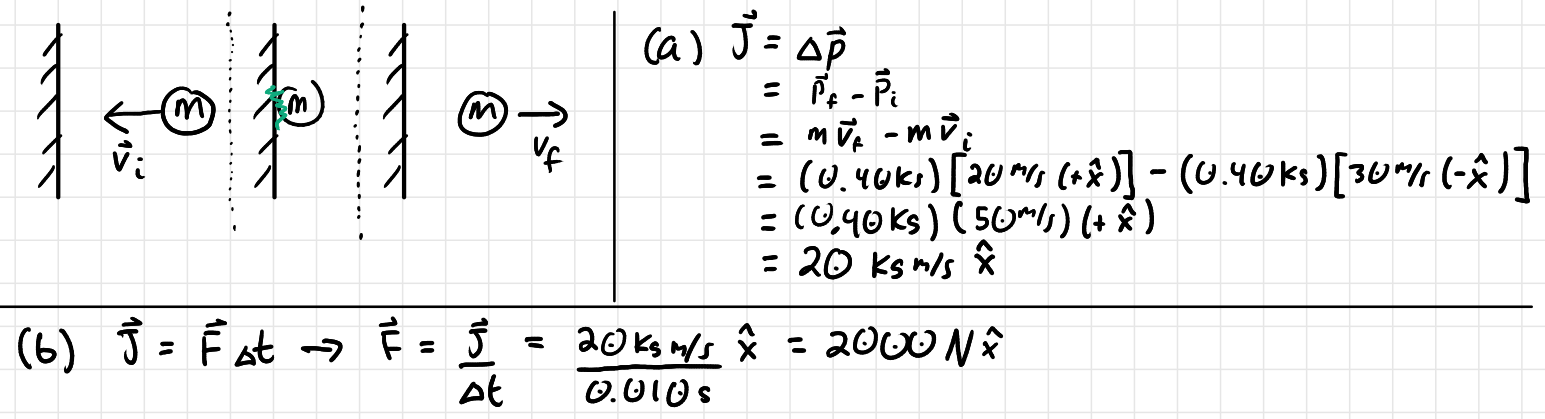 m
v⃗ᵢ
m
m
v_f
(a) J⃗ = Δp⃗
= p⃗_f - p⃗ᵢ
= m v⃗_f - m v⃗ᵢ
= (0.40 kg) [20 m/s (+x̂)] - (0.40 kg) [30 m/s (-x̂)]
= (0.40 kg) (50 m/s) (+x̂)
= 20 kg m/s x̂
(b) J⃗ = F⃗ Δt → F⃗ = J⃗/Δt = 20 kg m/s / 0.010 s x̂ = 2000 N x̂